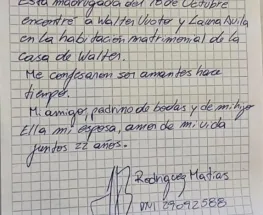 Esta madrugada del 18 de Octubre
encontré a Walter Victor y Laura Avila
en la habitación matrimonial de la
casa de Walter.
Me confesaron ser amantes hace
tiempo.
Mi amigo, padrino de bodas y de mi hijo
Ella mi esposa, amor de mi vida
juntos 22 años.
Rodriguez Matias
DNI 29092588